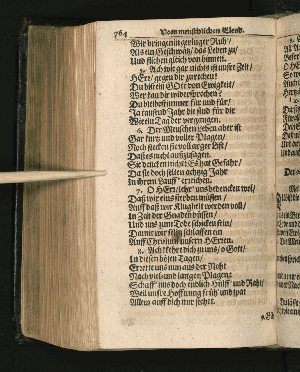 764 Vom menschlichen Elend.
Wir bringen in geringer Ruh/
Als ein Geschwätz/ das Leben zu/
Und fliehen gleich von hinnen.
5. Ach wie gar nichts ist unser Zeit/
HErr/ gegen dir zu rechen!
Du bist ein GOtt von Ewigkeit/
Wer kan dir widersprechen?
Du bleibest immer für und für/
Ja tausend Jahr die sind für dir
Wie ein Tag der vergangen.
6. Der Menschen Leben aber ist
Gar kurtz und voller Plagen/
Noch stecken sie voll arger List/
Daß es nicht auszusagen.
Sie dencken nicht: Es hat Gefahr/
Da sie doch selten achtzig Jahr
In ihrem Lauff erreichen.
7. O HErr/ lehr' uns bedencken wol/
Daß wir eins sterben müssen/
Auff daß wir Klugheit werden voll/
In Zeit der Gnaden büssen/
Und uns zum Tode schicken fein/
Damit wir selig schlaffen ein
Auff Christum unsern HErren.
8. Ach kehre dich zu uns/ o Gott/
In diesen bösen Tagen/
Errette uns nun aus der Noht
Nach viel und langen Plagen;
Schaff' uns doch endlich Hülff' und Raht/
Weil unsre Hoffnung früh' und spat
Allein auff dich nur siehet.